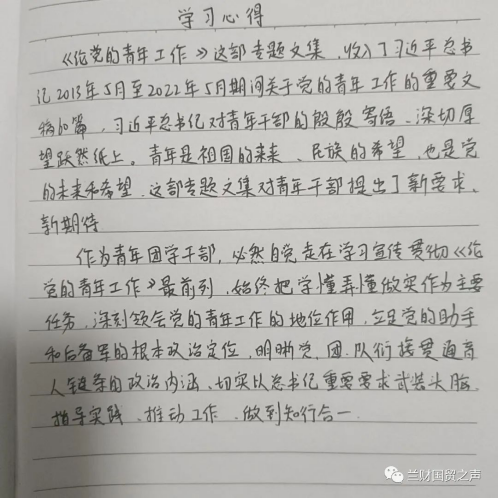 学习心得
《论党的青年工作》这部专题文集,收入了习近平总书
记2013年5月至2022年5月期间关于党的青年工作的重要文
稿60篇,习近平总书记对青年干部的殷殷寄语、深切厚
望跃然纸上。青年是祖国的未来、民族的希望,也是党
的未来和希望。这部专题文集对青年干部提出了新要求、
新期待
作为青年团学干部,必然自觉走在学习宣传贯彻《论
党的青年工作》最前列,始终把学懂弄懂做实作为主要
任务,深刻领会党的青年工作的地位作用,立足党的助手
和后备军的根本政治定位,明晰党、团、队衔接贯通育
人链条的政治内涵、切实以总书记重要要求武装头脑、
指导实践、推动工作、做到知行合一.
兰财国贸之声